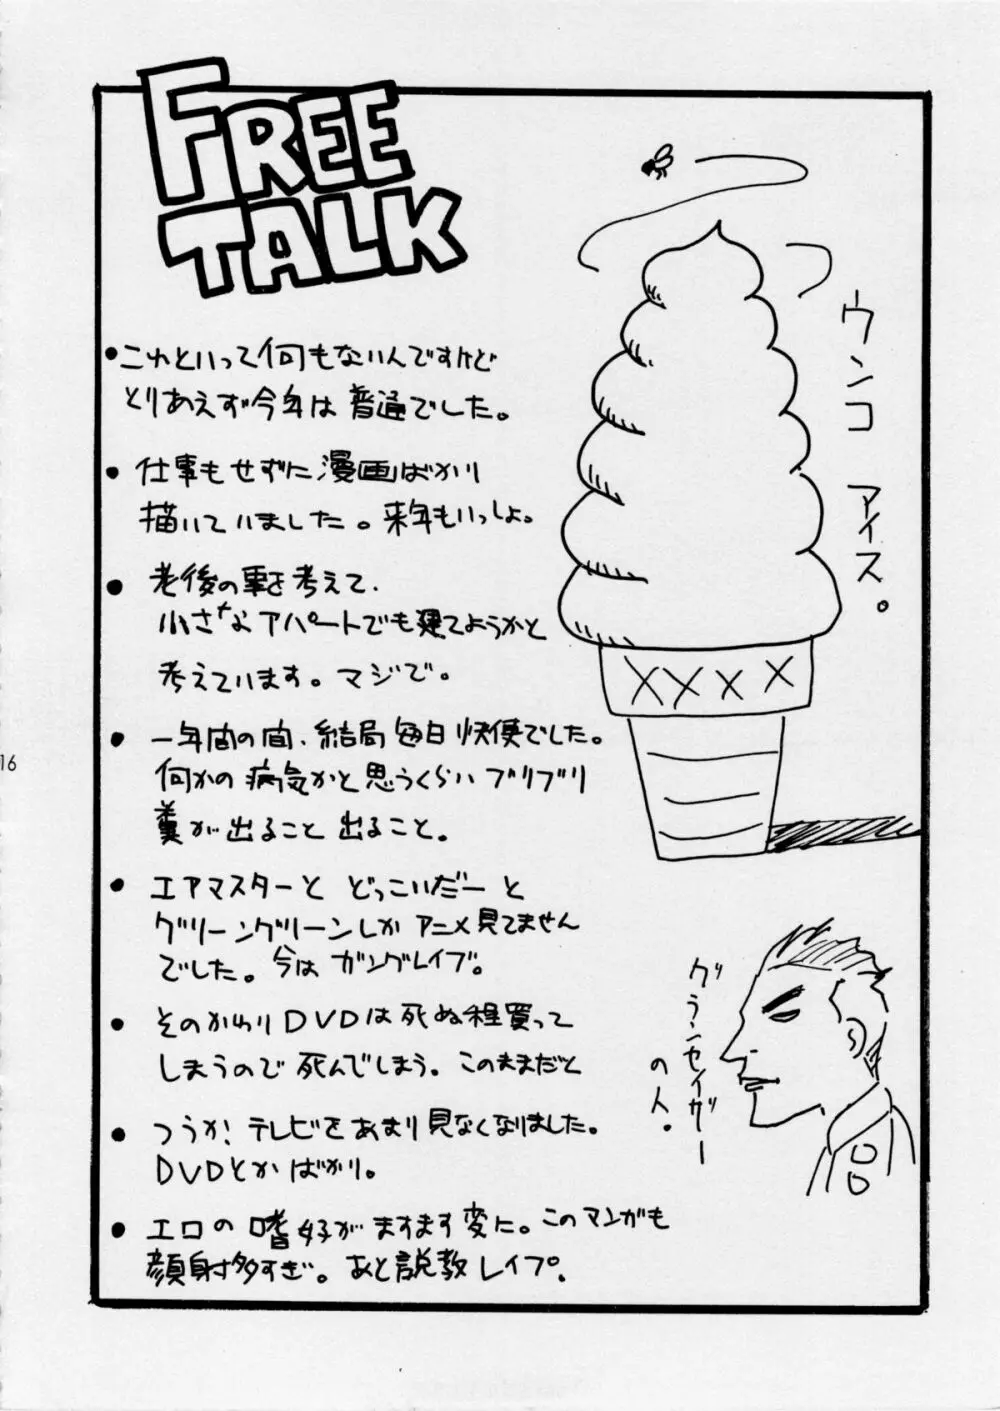 FREE
TALK
・これといって何もないんですけど
とりあえず今年は普通でした。
・仕事もせずに漫画ばかり
描いていました。来年もいっしょ。
・老後の事を考えて、
小さなアパートでも建てようかと
考えています。マジで。
・一年間の間、結局毎日快便でした。
何かの病気かと思うくらいブリブリ
糞が出ること出ること。
・エアマスターとどっこいだーと
グリーングリーンしかアニメ見てません
でした。今はガングレイブ。
・そのかわりDVDは死ぬ程買って
しまうので死んでしまう。このままだと
・つうか!テレビをあまり見なくなりました。
DVDとかばかり。
・エロの嗜好がますます変に。このマンガも
顔射多すぎ。あと説教レイプ。
ウンコ
アイス。
グランセイザー
の人。
16